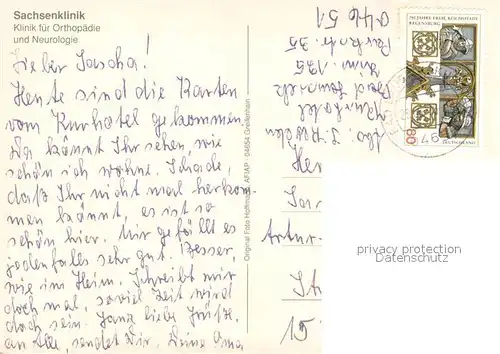 Sachsenklinik
Klinik für Orthopädie
und Neurologie
Lieber Sascha!
Heute sind die Karten
vom Kurhotel gekommen.
Da könnt Ihr sehen wie
schön ich wohne. Schade,
daß Ihr nicht mal herkom-
men könnt, es ist so
schön hier. Mir gefällt es
jedenfalls sehr gut. Besser,
wie im Heim. Schreibt mir
doch mal, soviel Zeit wird
doch sein. Ganz liebe Grüße,
an Alle, sendet Dir, Deine Oma
Original Foto Hoffmann, AFIAP · 04654 Greifenhain
Abs.:
Kurhotel
Bad Lausick
Zim. 135
Parkstr. 35
04651
750 JAHRE FREIE REICHSSTADT
REGENSBURG
80
DEUTSCHLAND
Her
Artur-
15
privacy protection
Datenschutz